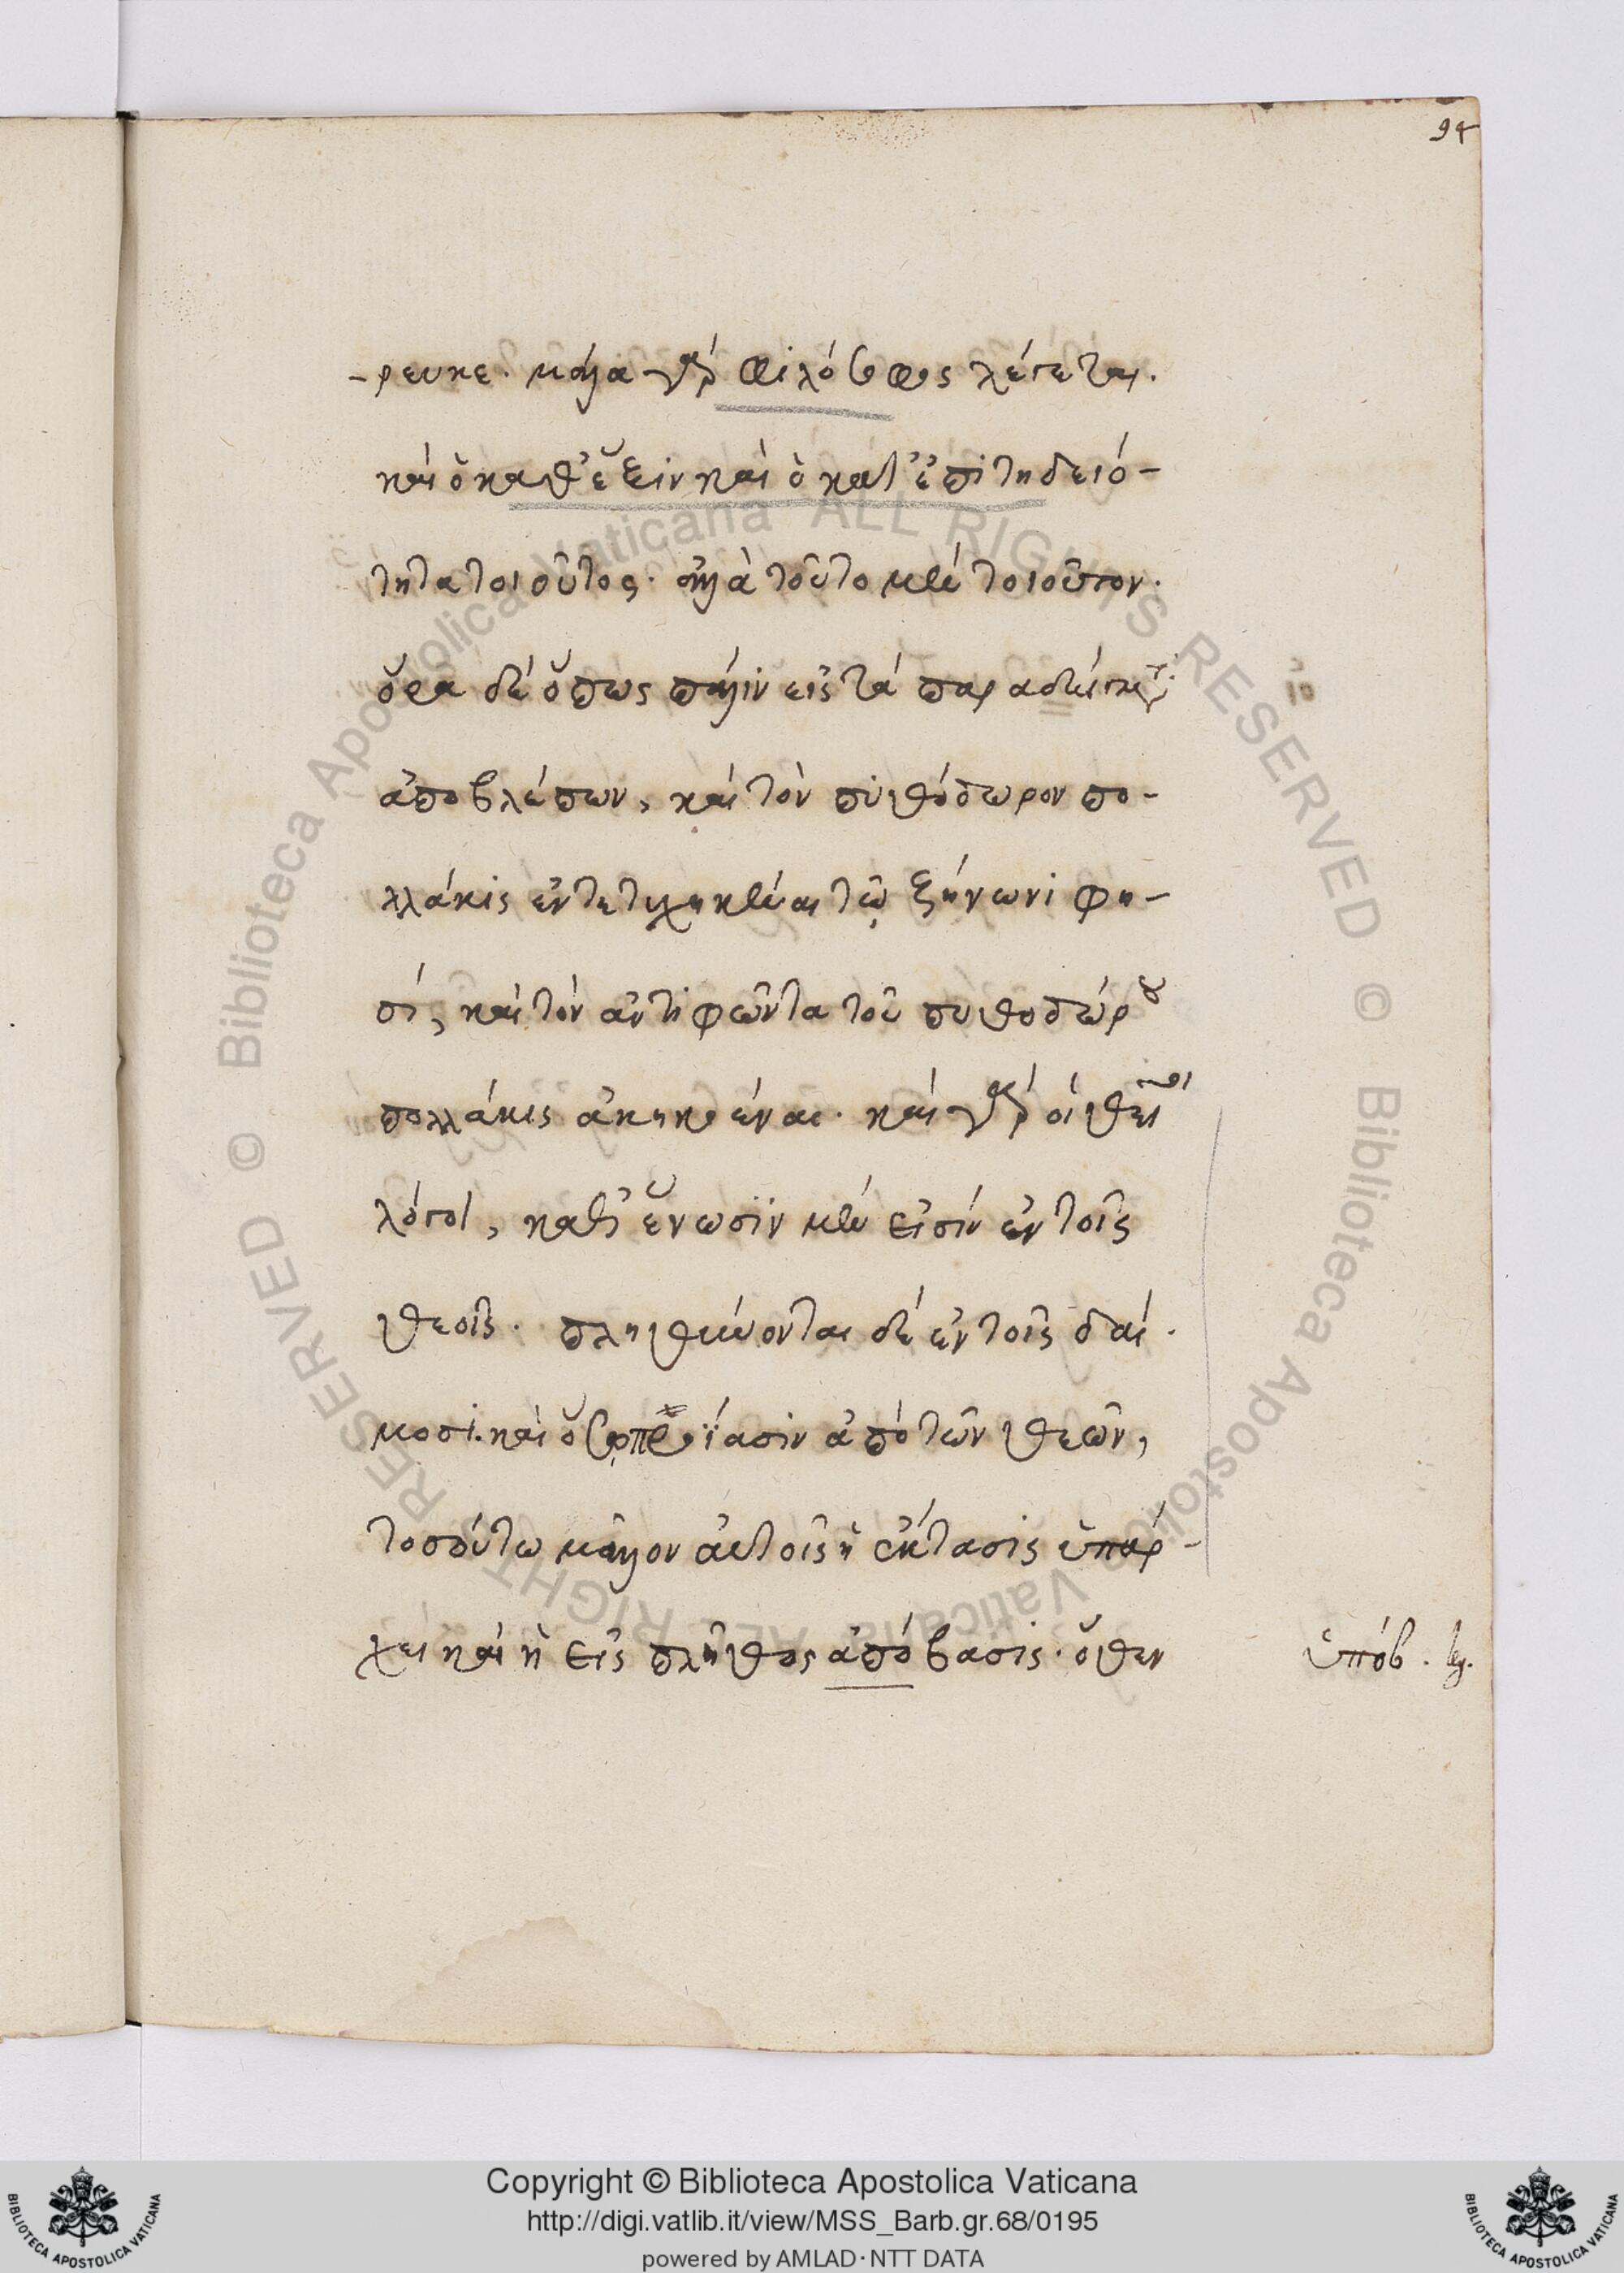 94
-ρευκε. μάλα γὰρ φιλόσοφος λέγεται.
καὶ ὁ καθ' ἕξιν καὶ ὁ κατ' ἐπιτηδειό-
τητα τοιοῦτος. ἀλλὰ τοῦτο μὲν τοιοῦτον.
ὅρα δὲ ὅπως πάλιν εἰς τὰ
ἀποβλέπων, καὶ τὸν πυθόδωρον πο-
λλάκις ἐντετυχηκέναι τῷ ζήνωνι φη-
σί, καὶ τὸν ἀντιφῶντα τοῦ πυθοδώρου
πολλάκις ἀκηκοέναι. καὶ γὰρ οἱ θεῖοι
λόγοι, καθ' ἕνωσϊν μὲν εἰσὶν ἐν τοῖς
θεοῖς. πληθύνονται δὲ ἐν τοῖς δαί.
μοσι. καὶ ὅσῳ προΐασιν ἀπὸ τῶν θεῶν,
τοσούτω μᾶλλον αὐτοῖς ἡ ἔκτασις ὑπάρ-
χει καὶ ἡ εἰς πλῆθος ἀπόβασις. ὅθεν
ὑπόβ. leg.
Copyright © Biblioteca Apostolica Vaticana
http://digi.vatlib.it/view/MSS_Barb.gr.68/0195
powered by AMLAD·NTT DATA
BIBLIOTECA APOSTOLICA VATICANA
BIBLIOTECA APOSTOLICA VATICANA
© Biblioteca Apostolica Vaticana ALL RIGHTS RESERVED © Biblioteca Apostolica Vaticana ALL RIGHTS RESERVED